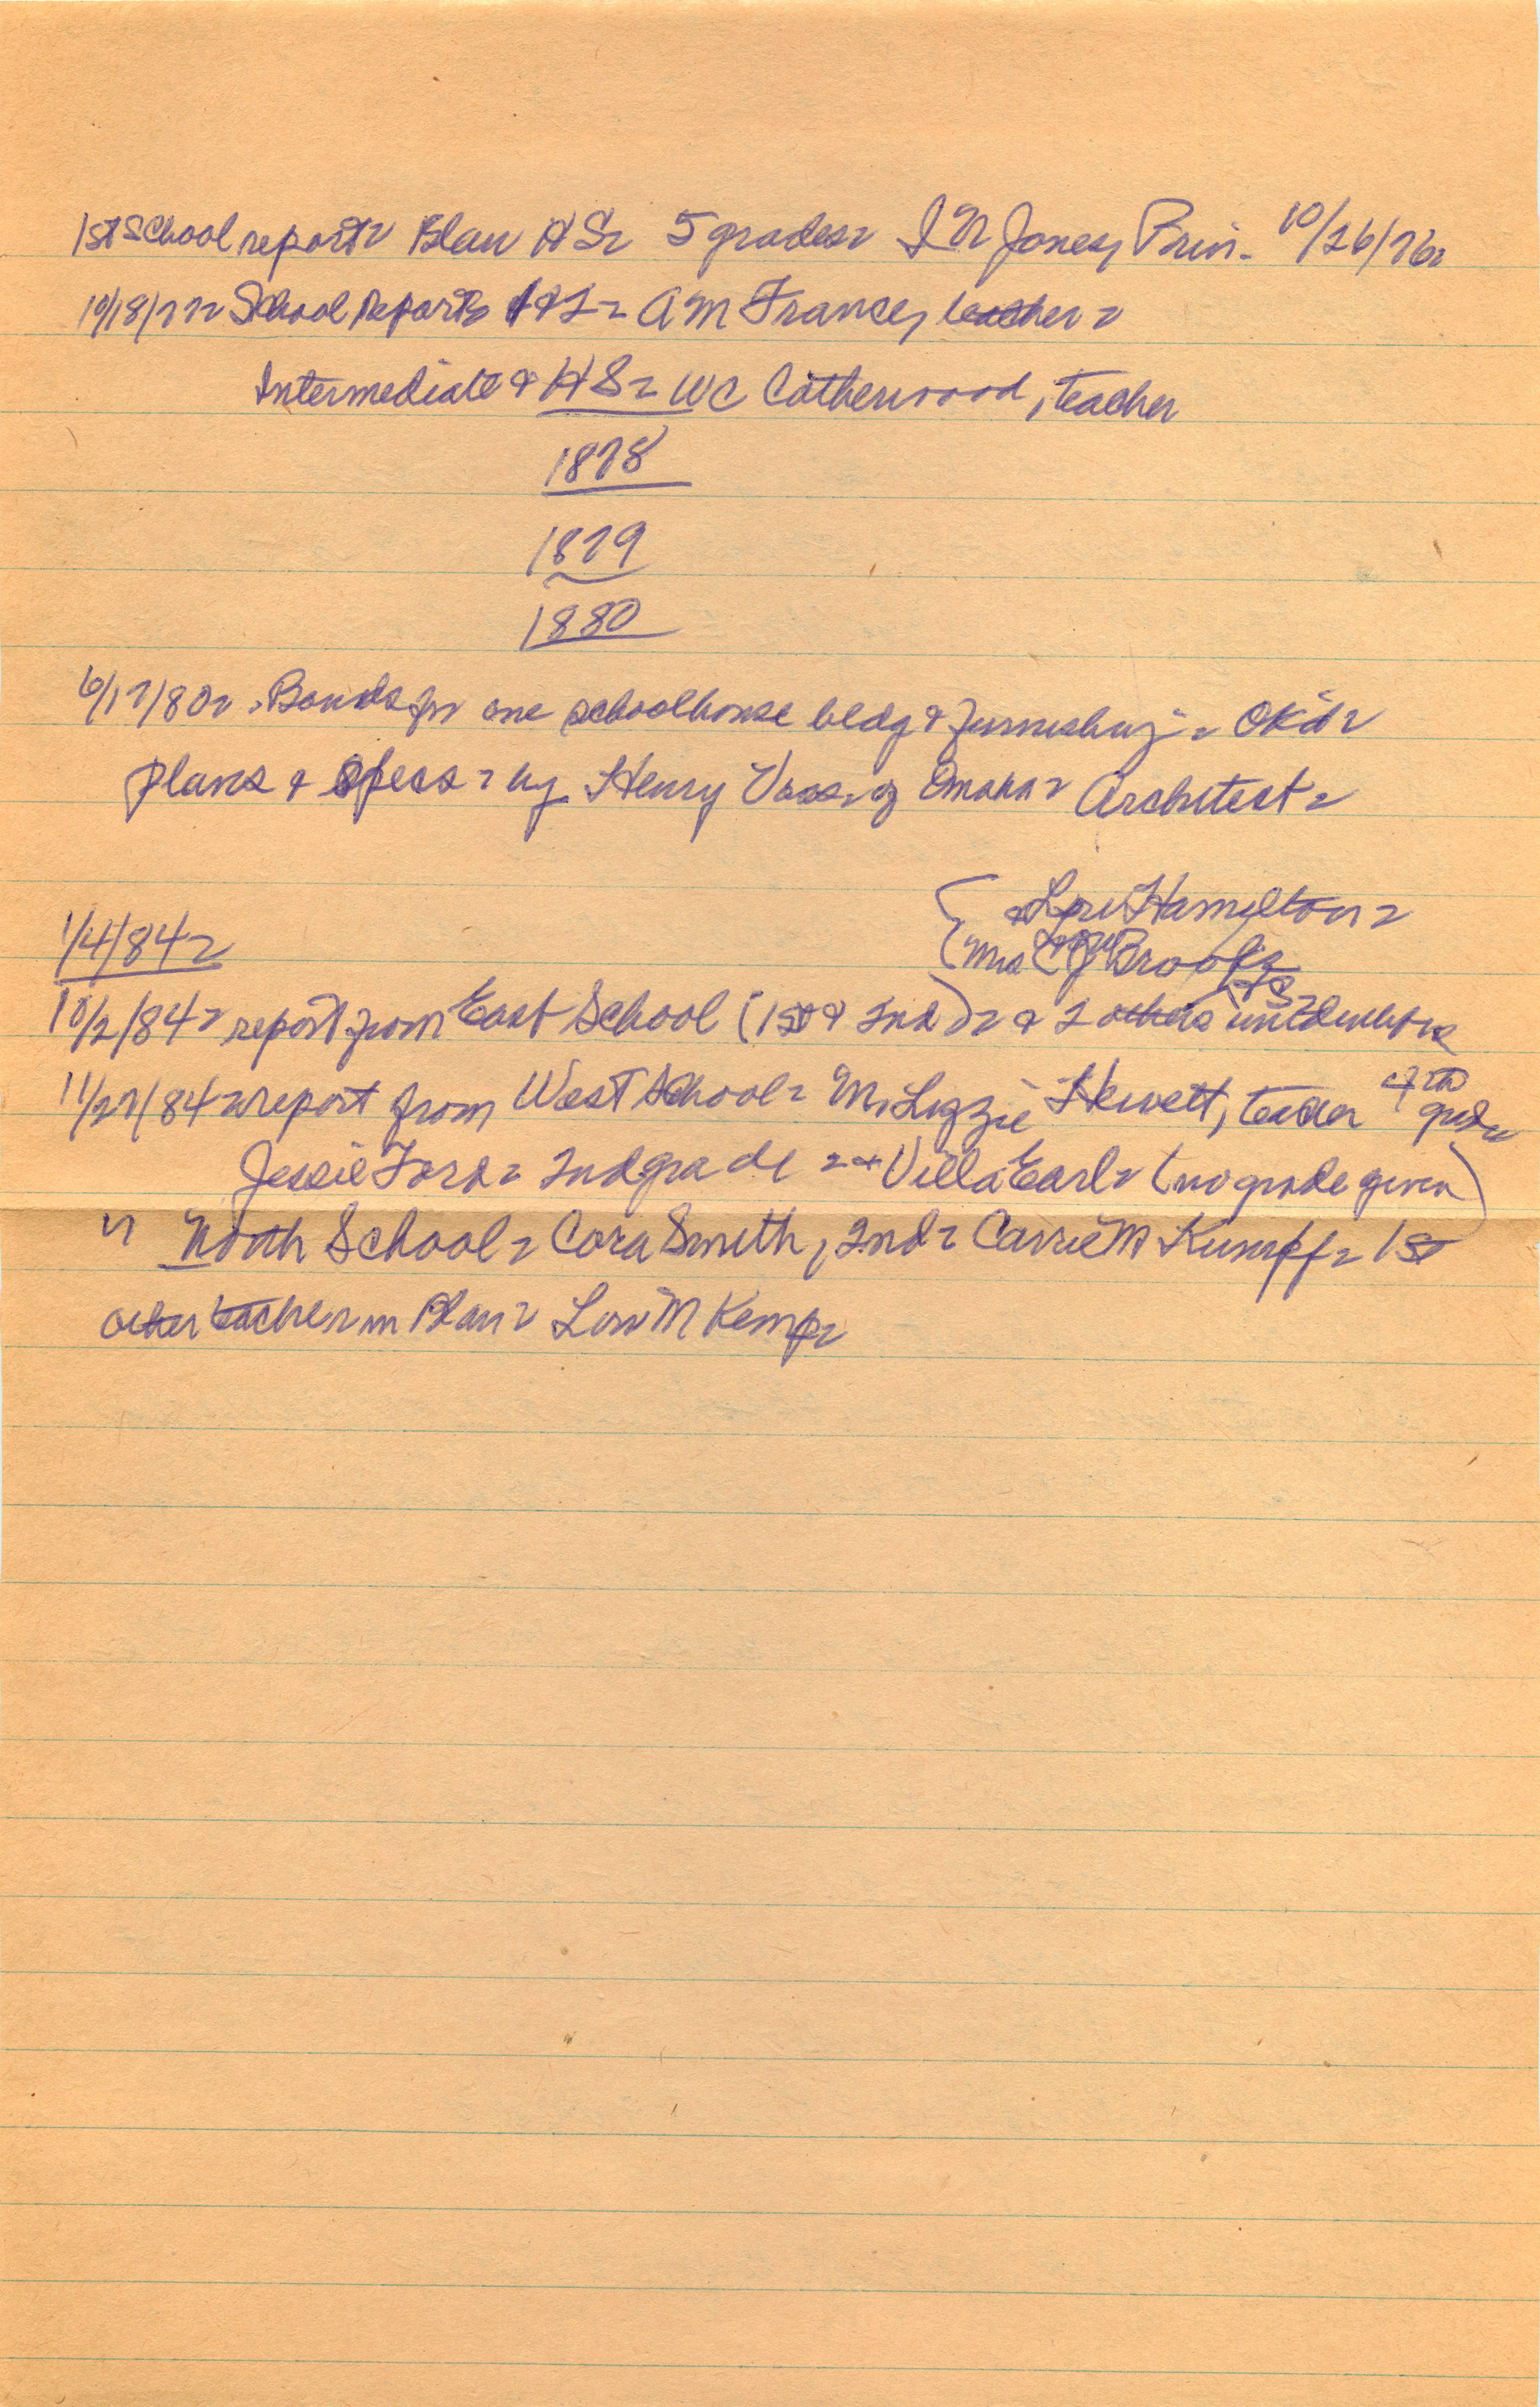 1st School report= Blair HS= 5 grades= I N Jones, Prin- 10/26/76=
10/18/77= School Reports 1&2= A M France, teacher=
Intermediate & HS= WC Catherwood, teacher
1878
1879
1880
6/17/80= Bonds for one schoolhouse bldg & furnishing= OK'd=
plans & specs= by Henry Voss= of Omaha= Architect=
& Lou Hamilton=
1/4/84=
(Mrs C J Brooks
10/2/84= report from East School (1st & 2nd)= & 2 others
11/27/84= report from West School= M. Lizzie Hewett, teacher 4th grade=
Jessie Ford= 2nd grade =& Villa Earl= (no grade given)
" North School= Cora Smith, 2nd= Carrie M Kumpf= 1st
other teacher in Blair= Lou M Kemp=